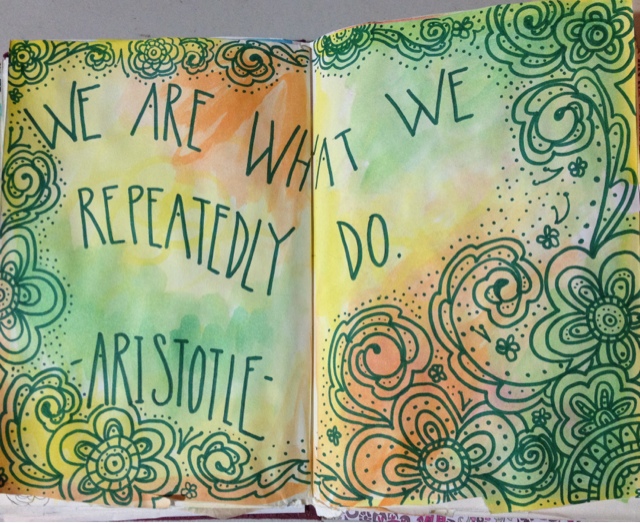 WE ARE WHAT WE
REPEATEDLY DO.
-ARISTOTLE-